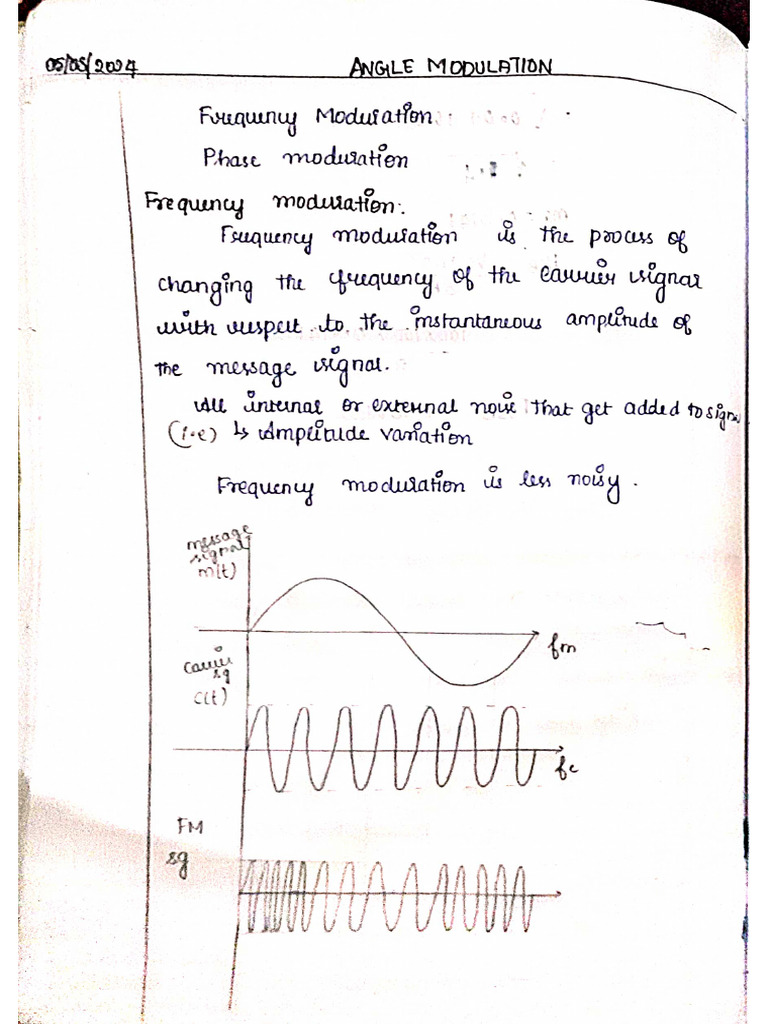 05/05/2024 ANGLE MODULATION
Frequency Modulation
Phase modulation
Frequency modulation:
Frequency modulation is the process of
changing the frequency of the carrier signal
with respect to the instantaneous amplitude of
the message signal.
All internal or external noise that get added to sign
(i.e) ↳ Amplitude variation
Frequency modulation is less noisy.
message
signal
m(t)
fm
Carrier
sg
C(t)
fc
FM
sg